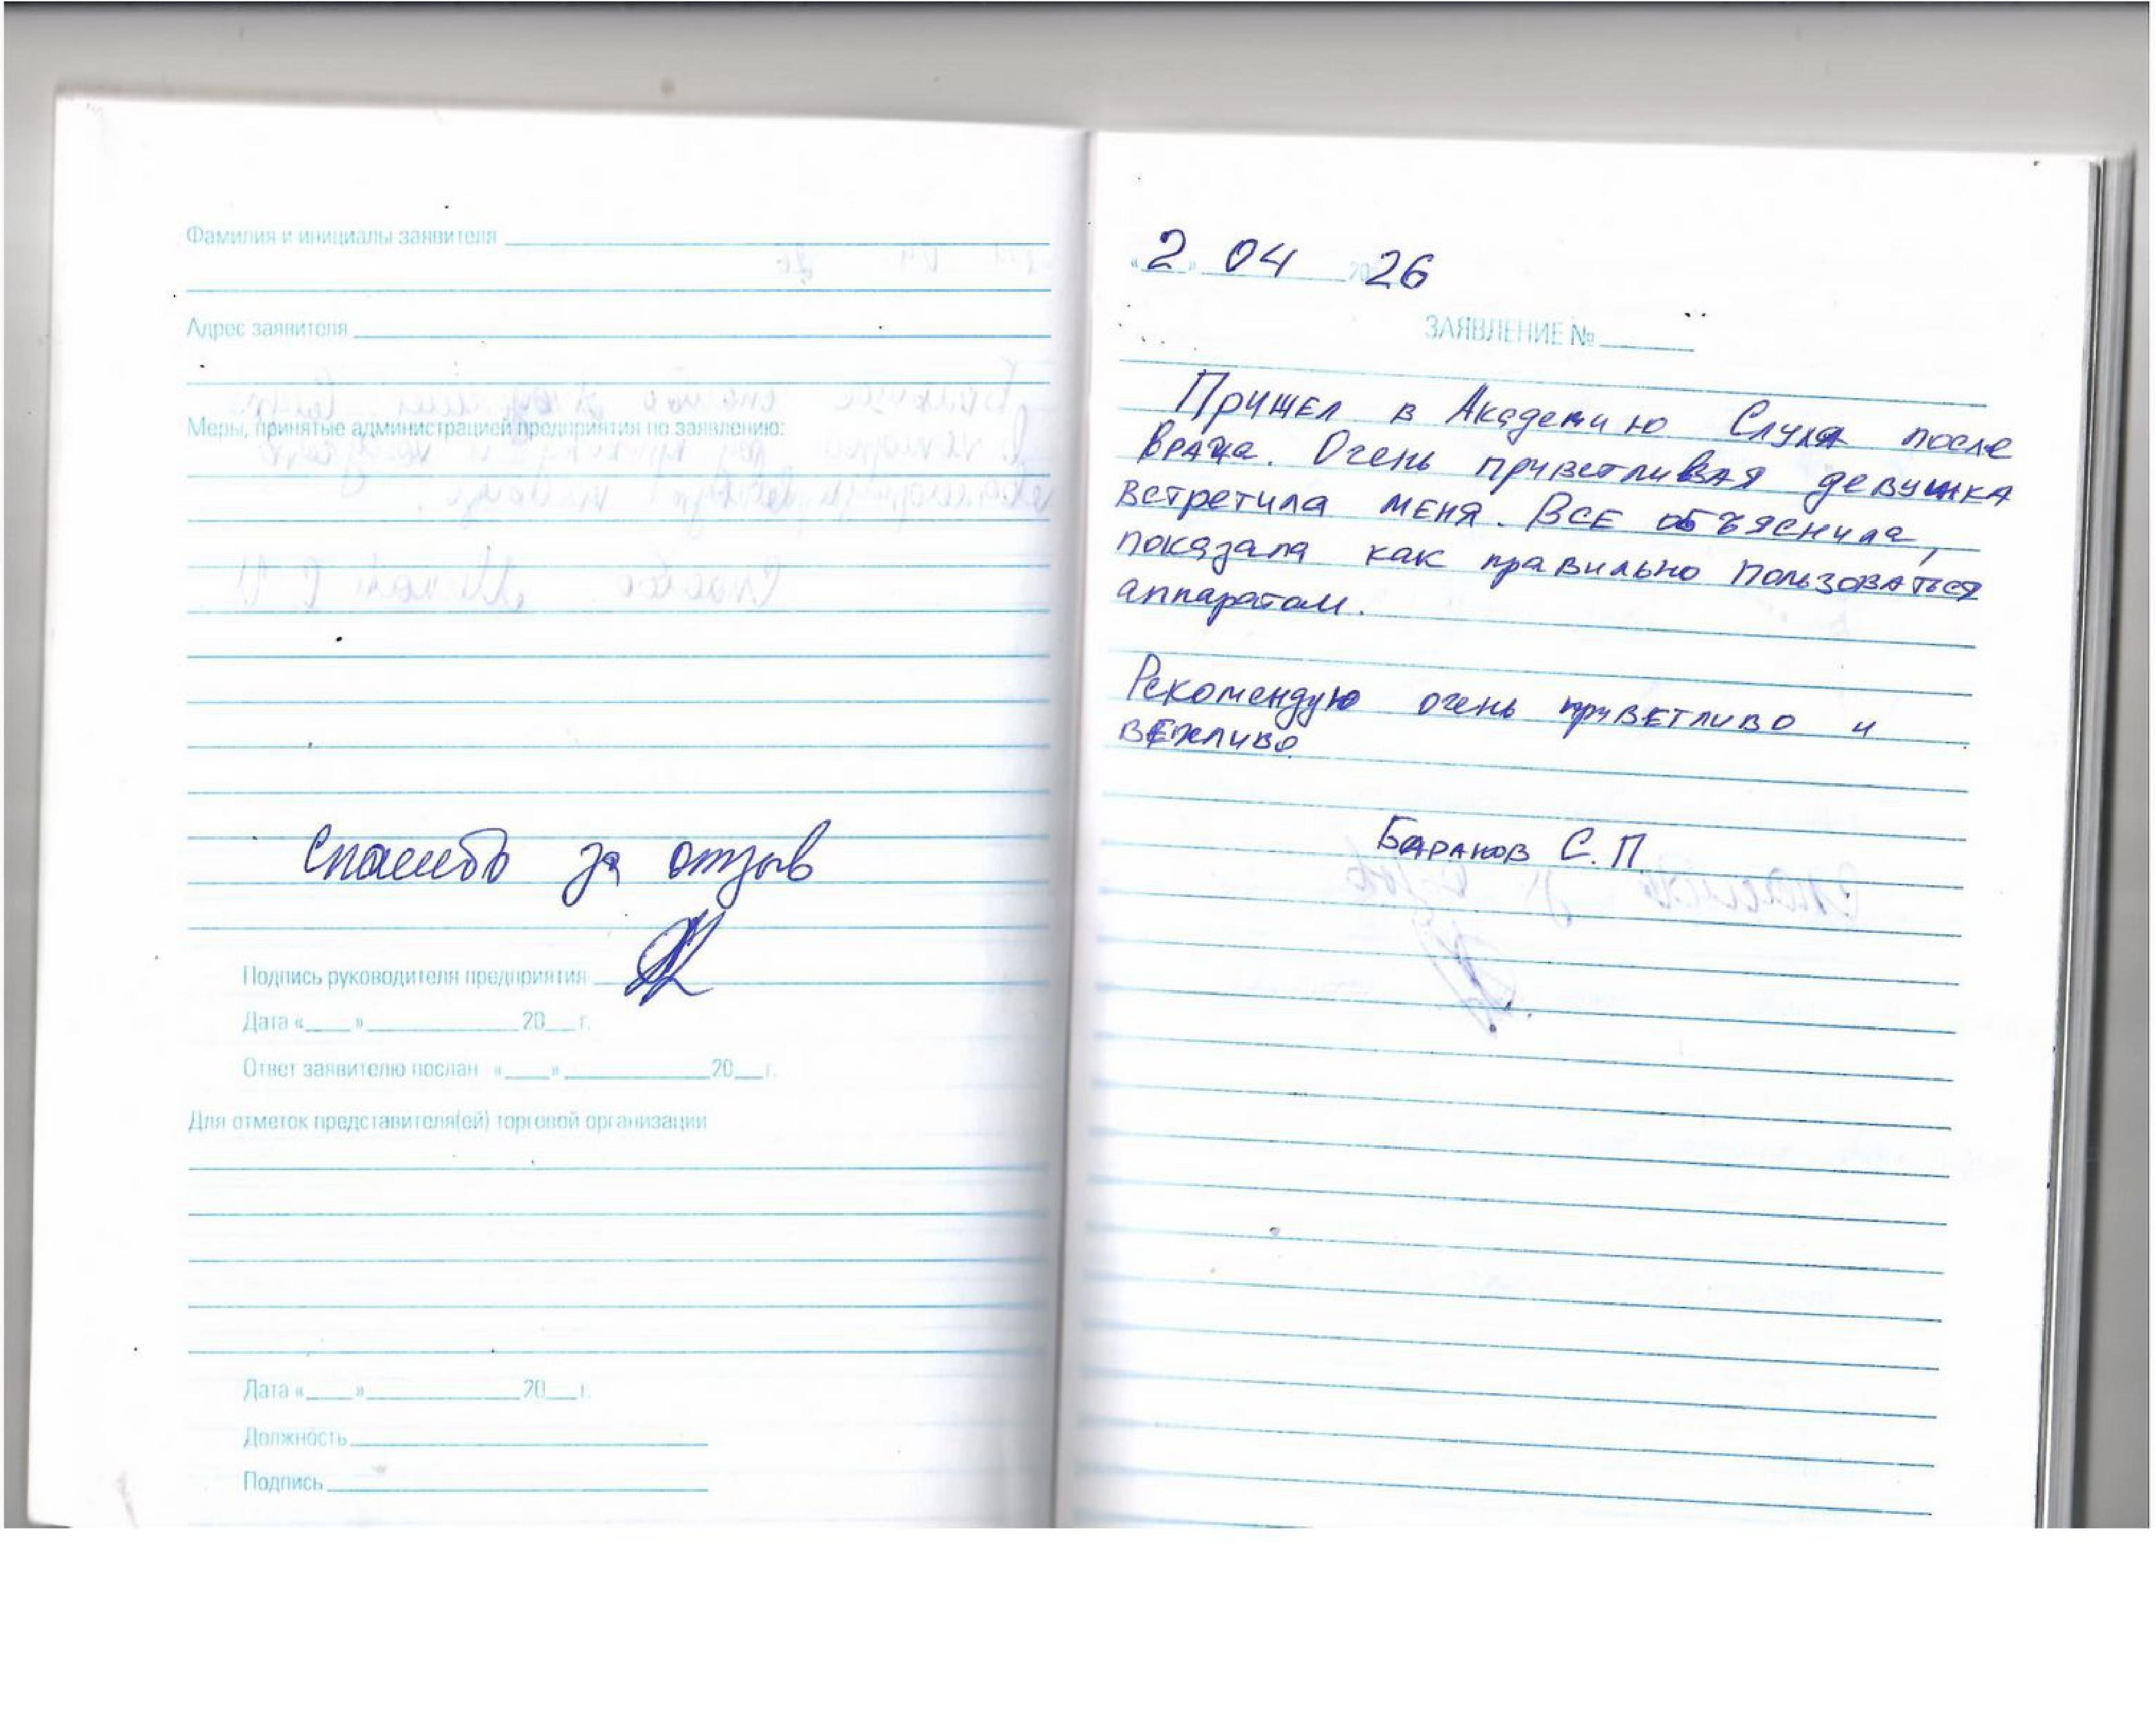 Фамилия и инициалы заявителя
Адрес заявителя
Меры, принятые администрацией предприятия по заявлению:
Спасибо за отзыв
Подпись руководителя предприятия
Дата «____» ____________ 20___ г.
Ответ заявителю послан «____» ____________ 20___ г.
Для отметок представителя(ей) торговой организации
Дата «____» ____________ 20___ г.
Должность
Подпись
«2» 04 2026
ЗАЯВЛЕНИЕ №
Пришел в Академию Слуха после
врача. Очень приветливая девушка
встретила меня. Все объяснила,
показала как правильно пользоваться
аппаратом.
Рекомендую очень приветливо и
вежливо.
Баранов С.П.